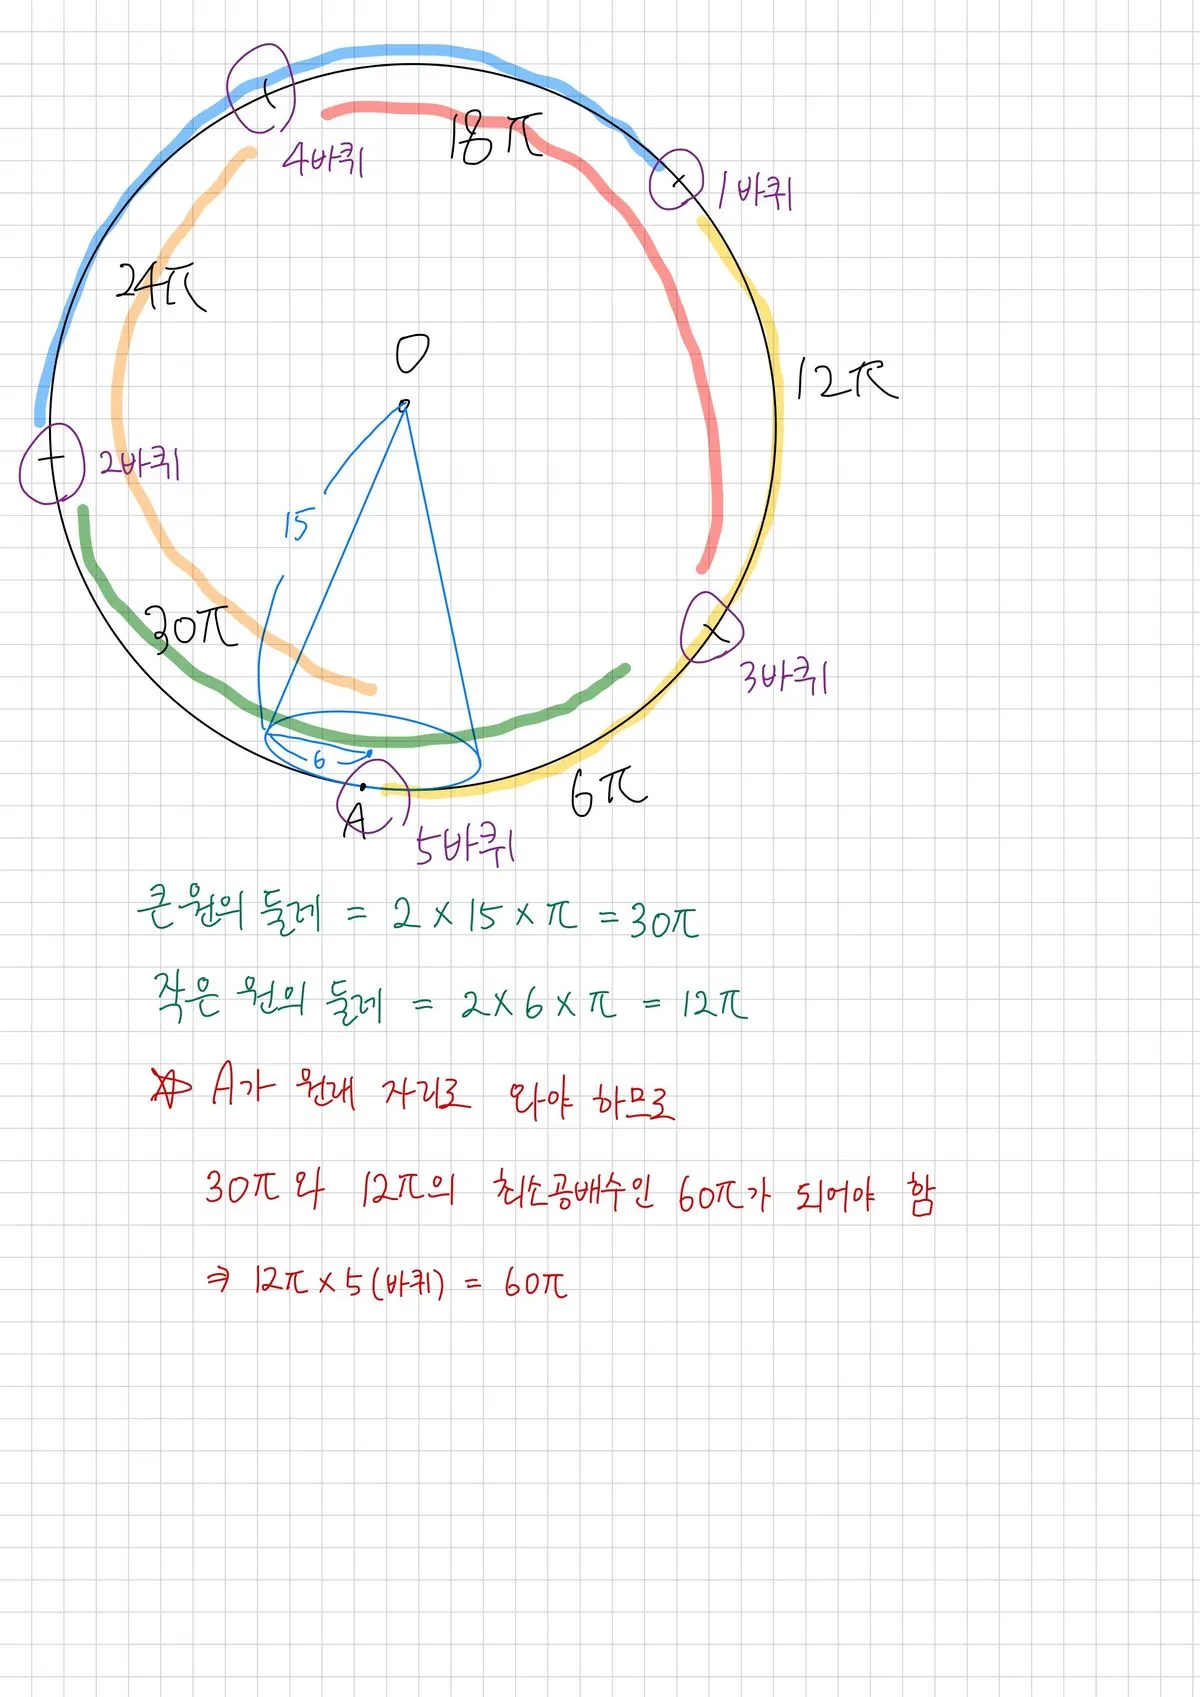 4바퀴
18π
1바퀴
24π
O
12π
2바퀴
15
30π
3바퀴
6
A
6π
5바퀴
큰 원의 둘레 = 2 × 15 × π = 30π
작은 원의 둘레 = 2×6×π = 12π
☆ A가 원래 자리로 와야 하므로
30π와 12π의 최소공배수인 60π가 되어야 함
⇒ 12π × 5 (바퀴) = 60π